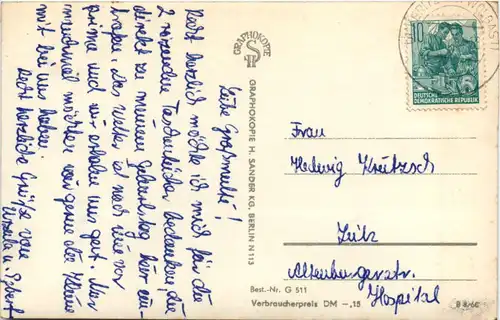 Liebe Großmutti!
Recht herzlich möchte ich mich für die
2 reizenden Taschentücher bedanken, die
direkt zu meinem Geburtstag hier ein-
trafen. Das Wetter ist nach wie vor
prima und wir erholen uns gut. Nur
manchmal möchten wir gerne die Kleine
mit bei uns haben.
Recht herzliche Grüße von
Ursula u. Egbert
GRAPHOKOPIE
GRAPHOKOPIE H. SANDER KG. BERLIN N 113
10
DEUTSCHE
DEMOKRATISCHE REPUBLIK
Frau
Hedwig Kreutzsch
Zeitz
Altenburgerstr.
Hospital
Best.-Nr. G 511
Verbraucherpreis DM -,15